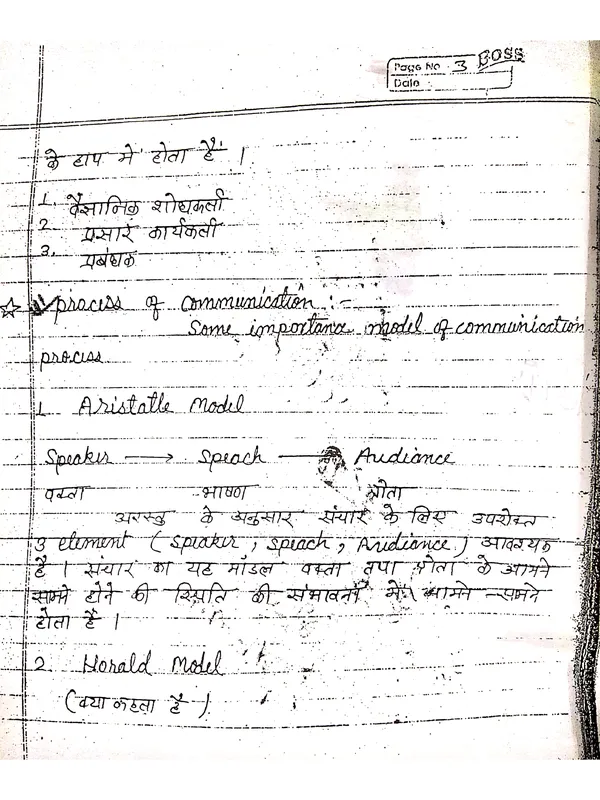 Page No. 3 BOSS
Date
के हाथ में होता है ।
1. वैज्ञानिक शोधकर्ता
2. प्रसार कार्यकर्ता
3. प्रबंधक
process of communication :-
Some importance model of communication
process
1. Aristatle Model
Speaker → Speach → Audiance
वक्ता भाषण श्रोता
अरस्तु के अनुसार संचार के लिए उपरोक्त
3 element ( Speaker , Speach , Audiance ) आवश्यक
है । संचार का यह मॉडल वक्ता तथा श्रोता के आमने
सामने होने की स्थिति की संभावना में आमने - सामने
होता है ।
2. Horald Model
( क्या कहता है )